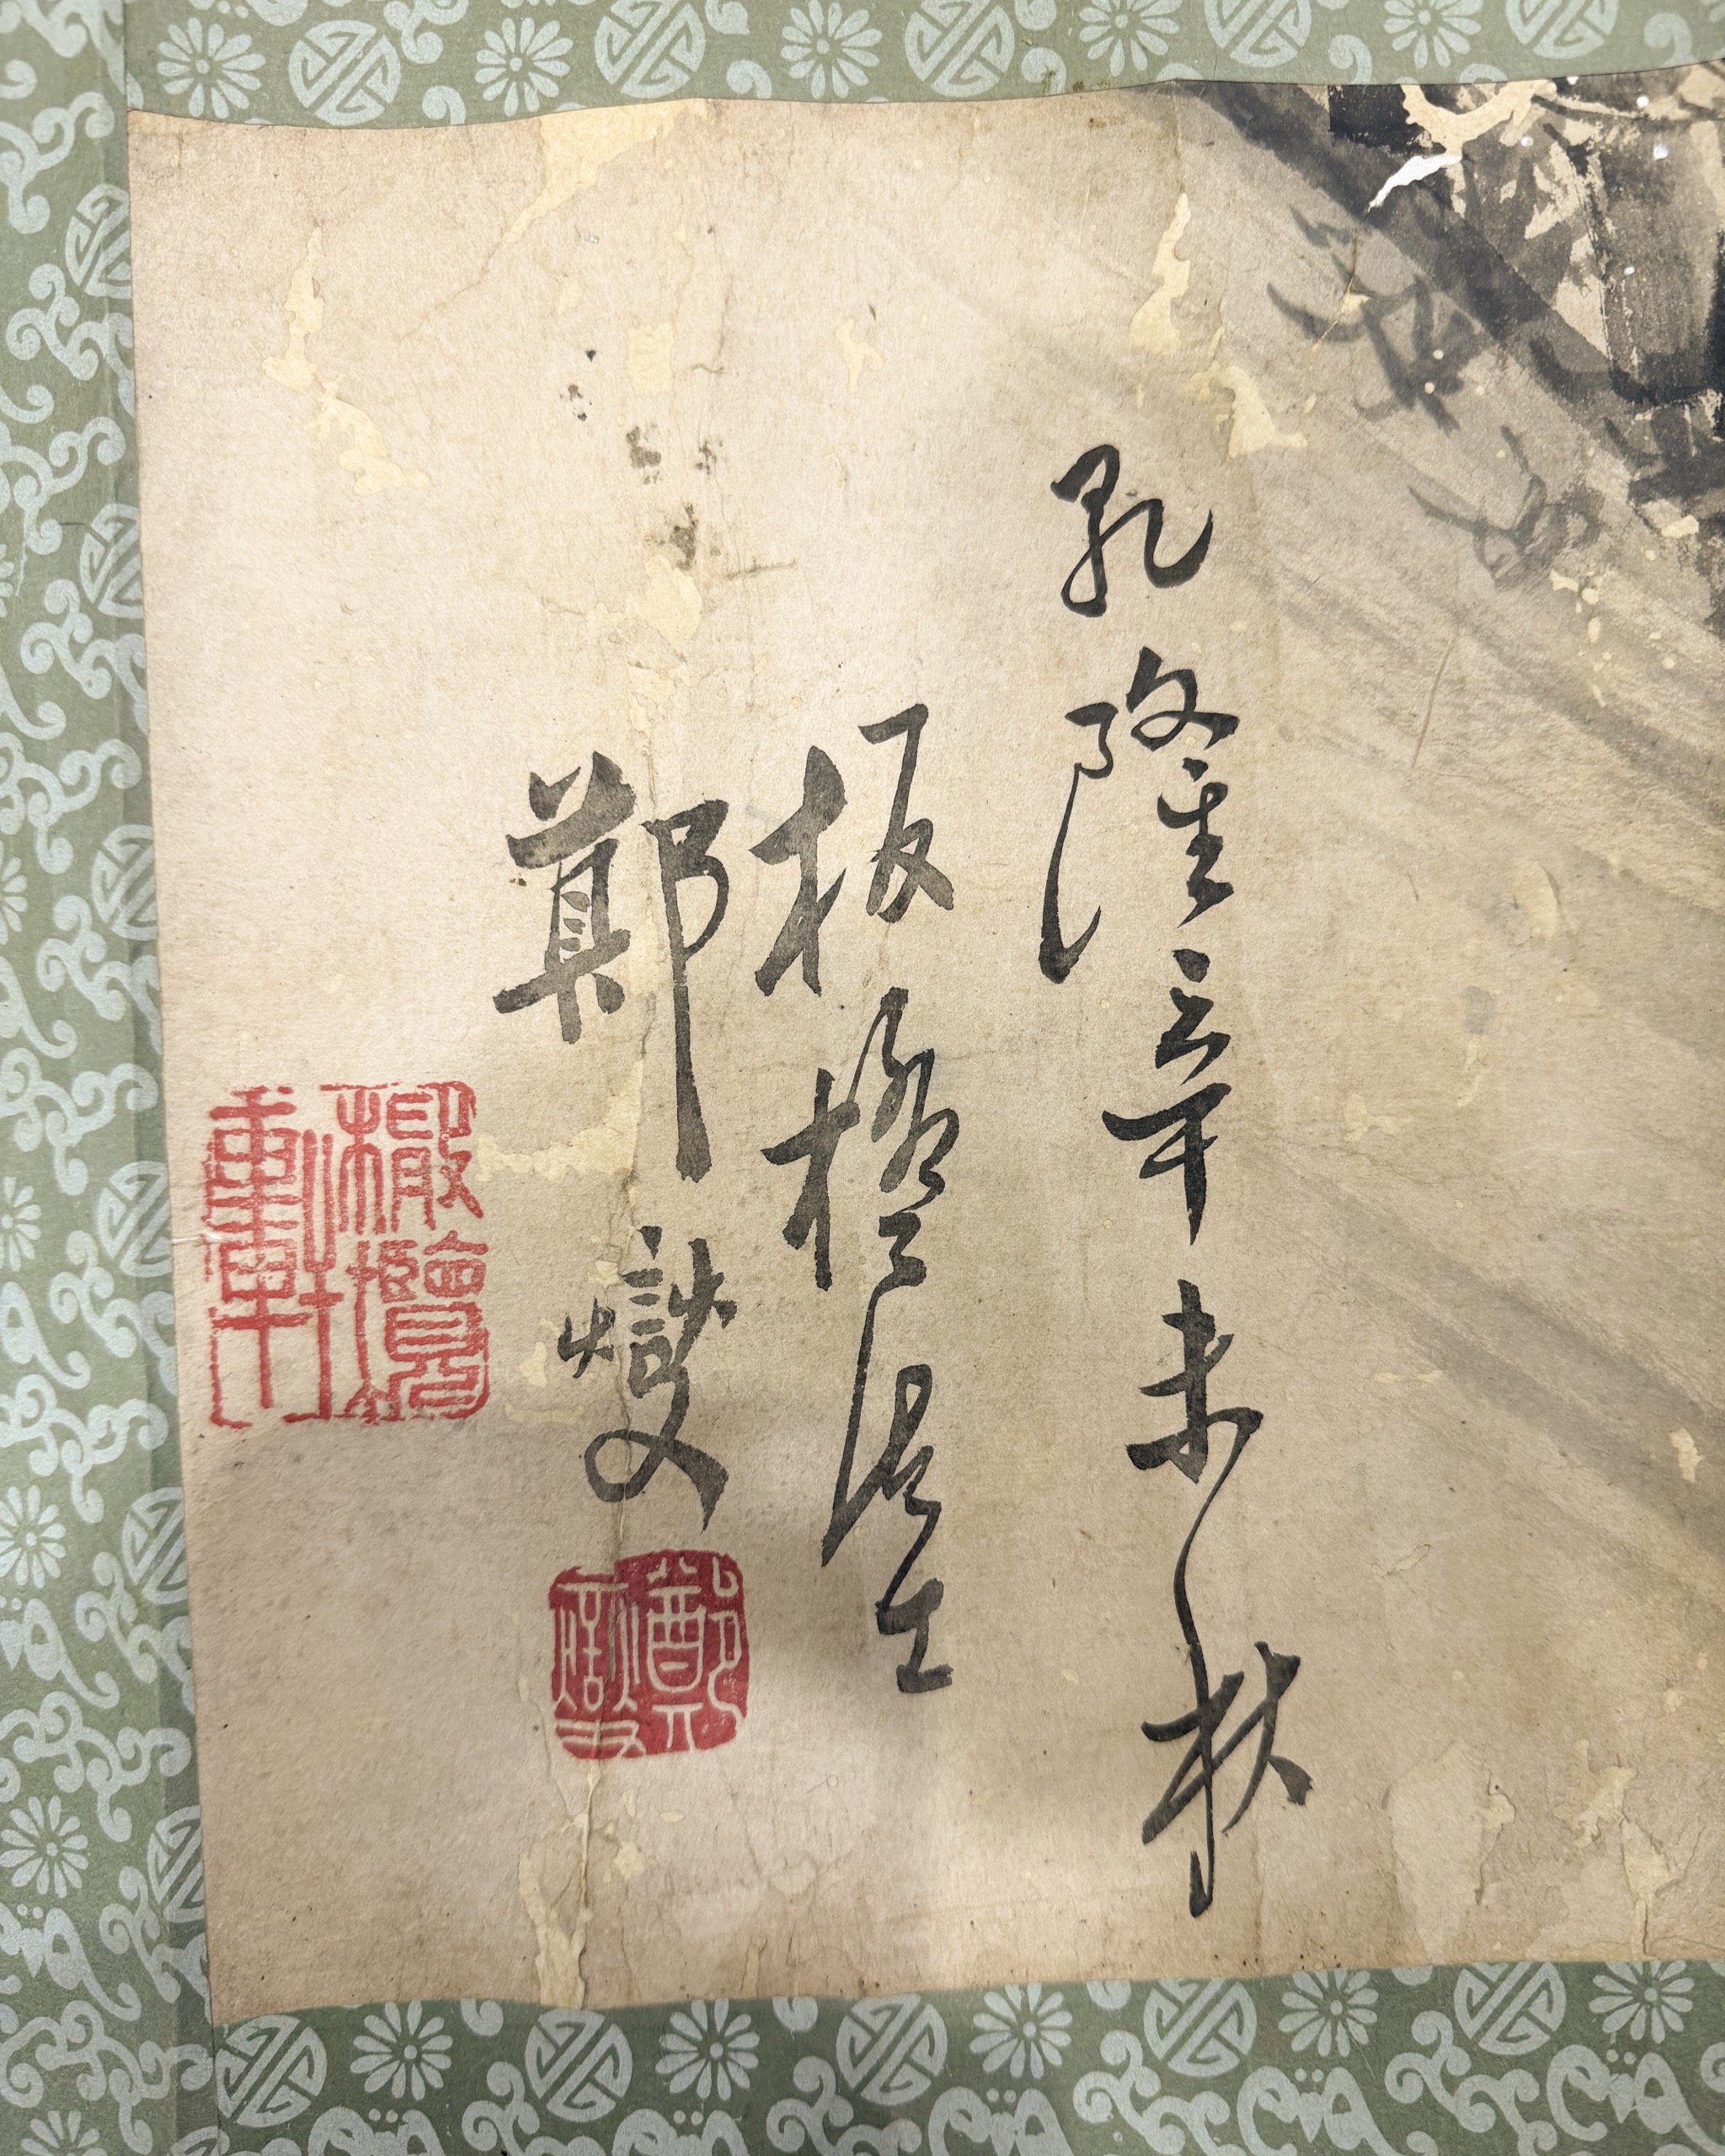 乾隆辛未秋
板橋居士
鄭燮
鄭燮
橄欖軒